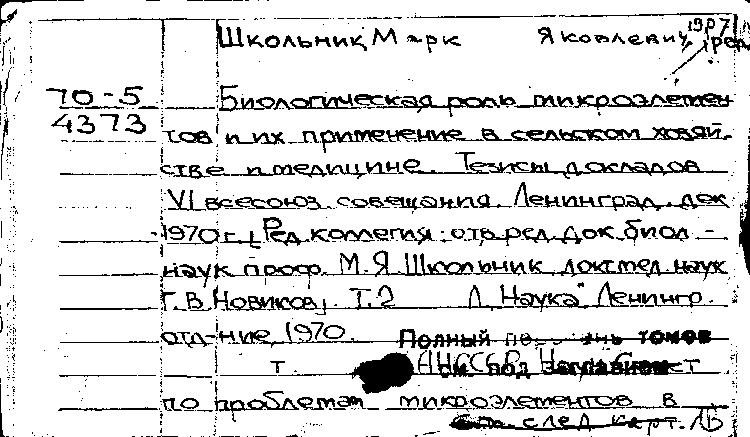 1907
Школьник, Марк Яковлевич, ред.
70-5 Биологическая роль микроэлемен
4373 тов и их применение в сельском хозяй-
стве и медицине. Тезисы докладов
VI всесоюз. совещания. Ленинград, дек
1970 г. [Ред. коллегия: отв. ред. док. биол -
наук проф. М. Я. Школьник, докт. мед. наук
Г. В. Новиков]. Т. 2 Л. "Наука" Ленингр.
отд-ние, 1970. Полный перечень томов
т. АН СССР. Науч. Совет см. под заглавием
по проблемам микроэлементов в
см. след карт. ЛБ